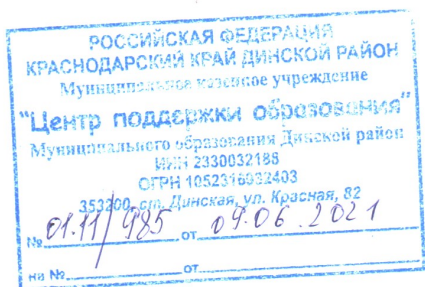 РОССИЙСКАЯ ФЕДЕРАЦИЯ
КРАСНОДАРСКИЙ КРАЙ ДИНСКОЙ РАЙОН
Муниципальное казенное учреждение
"Центр поддержки образования"
Муниципального образования Динской район
ИНН 2330032188
ОГРН 1052316932403
353200, ст. Динская, ул. Красная, 82
№ 01.11/985 от 09.06.2021
на № от